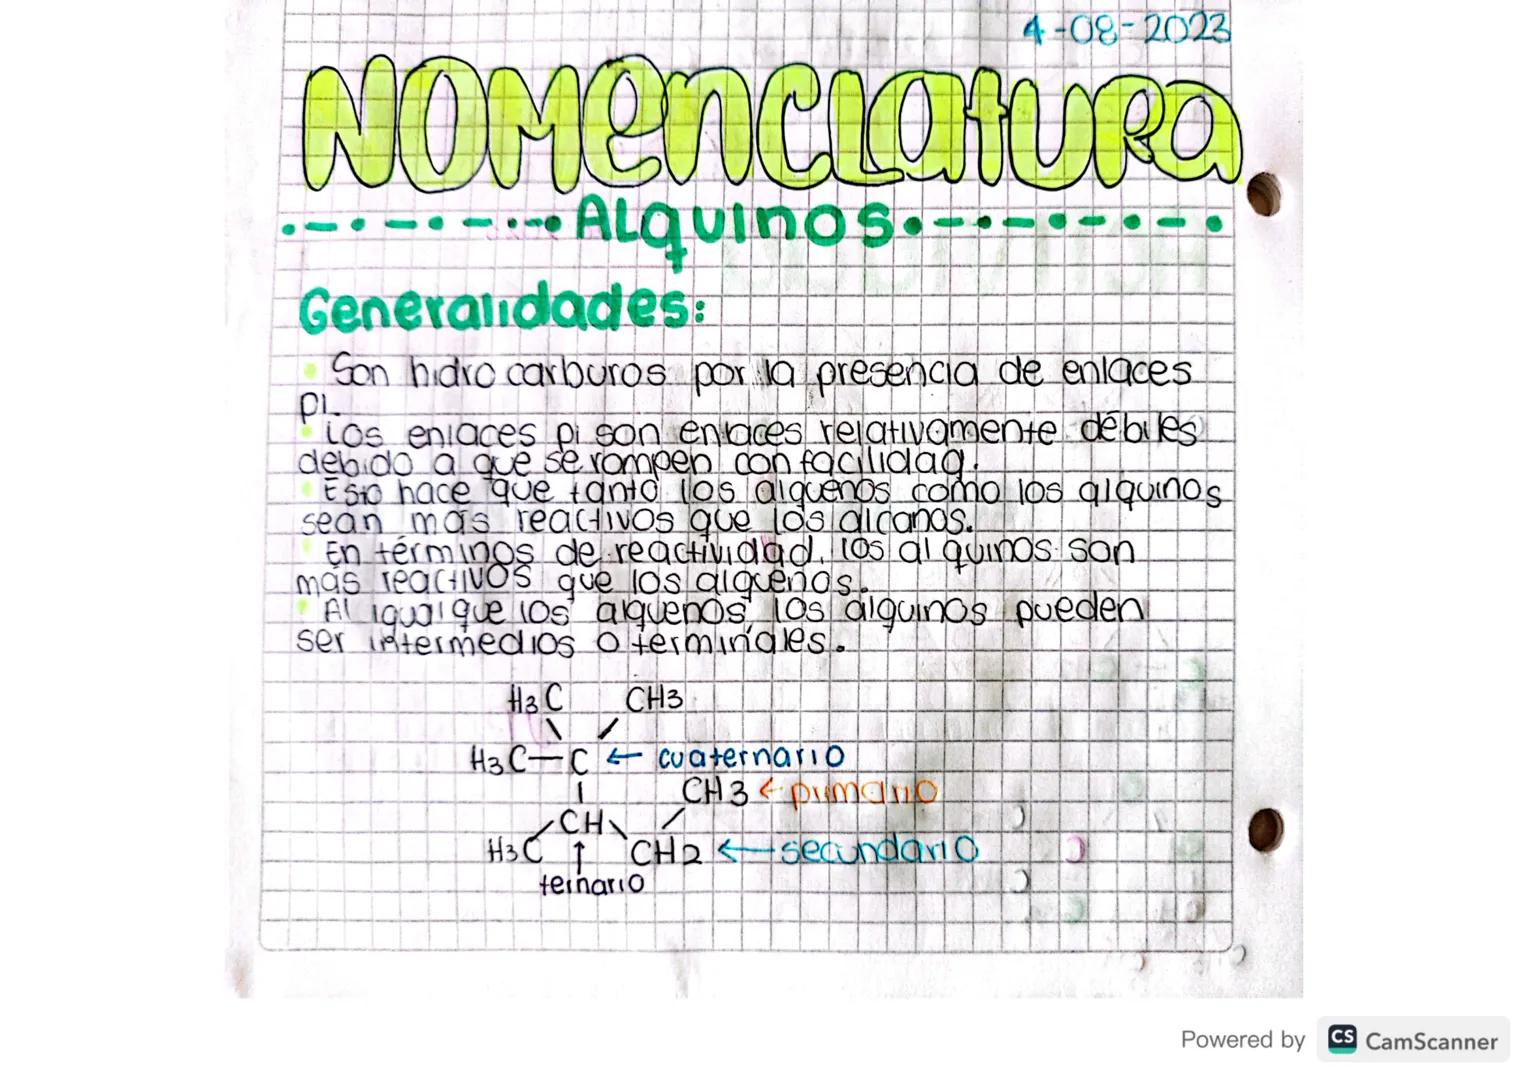 4-08-2023
NOMenclatura
ALquinos
Generalidades:
Son hidrocarburos por la presencia de enlaces
pi.
Los enlaces pi son enlaces relativamente débiles
debido a que se rompen con facilidad.
Esto hace que tanto los alquenos como los alquinos
sean más reactivos que los alcanos.
En términos de reactividad, los alquinos son
más reactivos que los alquenos.
Al igual que los alquenos, los alquinos pueden
ser intermedios o terminales.
H3C CH3
H3C—C ← cuaternario
CH3 ← primario
CH
H3C ↑ CH2 ← secundario
ternario
Powered by CS CamScanner